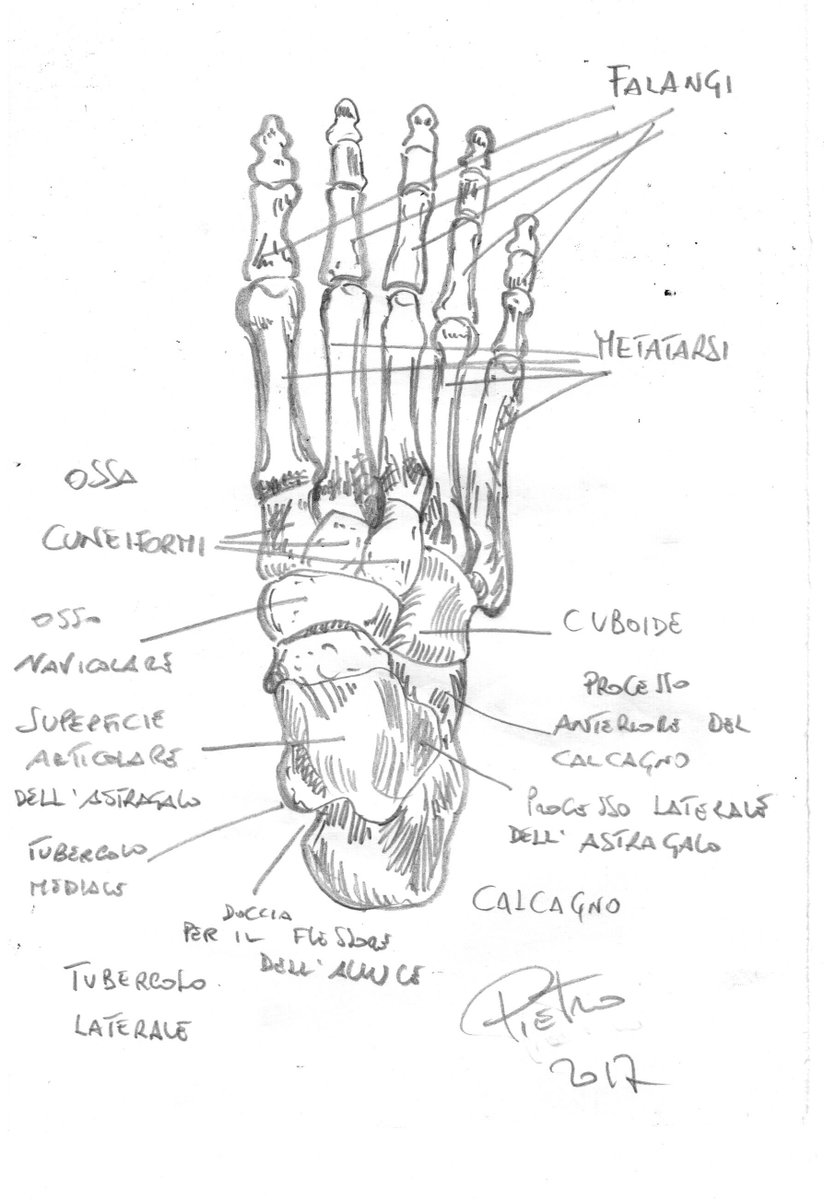 FALANGI
METATARSI
OSSA
CUNEIFORMI
OSSO
NAVICOLARE
CUBOIDE
PROCESSO
ANTERIORE DEL
CALCAGNO
SUPERFICIE
ARTICOLARE
DELL'ASTRAGALO
PROCESSO LATERALE
DELL'ASTRAGALO
TUBERCOLO
MEDIALE
CALCAGNO
DOCCIA
PER IL FLESSORE
DELL'ALLUCE
TUBERCOLO
LATERALE
Pietro
2017